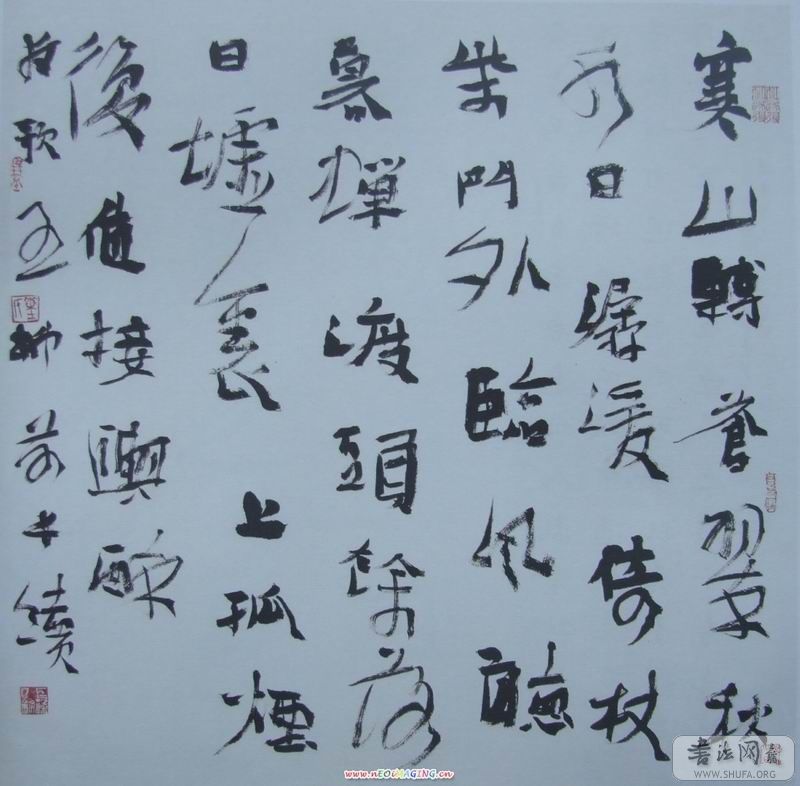 寒山轉蒼翠秋
水日潺湲倚杖
柴門外臨風聽
暮蟬渡頭餘落
日墟裏上孤煙
復值接輿醉
狂歌五柳前
書法网
WWW.SHUFA.ORG
www.nEOiMAGING.cn